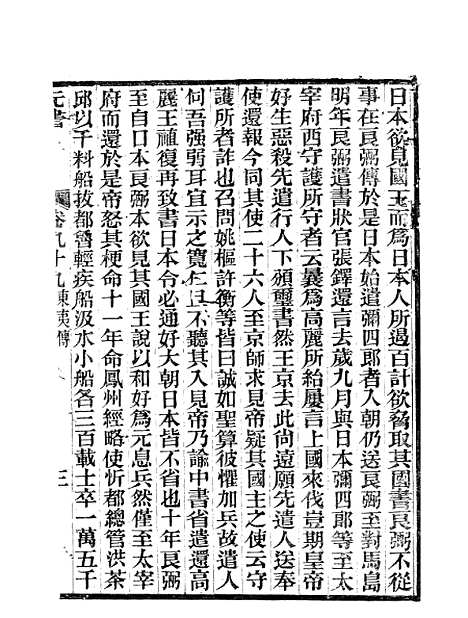 日本欲見國王而爲日本人所遏百計欲脅取其國書良弼不從
事在良弼傳於是日本始遣彌四郎者入朝仍送良弼至對馬島
明年良弼遣書狀官張鐸還言去歲九月與日本彌四郎等至太
宰府西守護所守者云曩爲高麗所紿屢言上國來伐豈期皇帝
好生惡殺先遣行人下頒璽書然王京去此尚遠願先遣人送奉
使還報今同其使二十六人至京師求見帝疑其國主之使云守
護所者詐也召問姚樞許衡等皆曰誠如聖算彼懼加兵故遣人
伺吾强弱耳宜示之寬仁且不聽其入見帝乃諭中書省遣還高
麗王禃復再致書日本令必通好大朝日本皆不省也十年良弼
至自日本良弼本欲見其國王說以和好爲元息兵然僅至太宰
府而還於是帝怒其梗命十一年命鳳州經略使忻都總管洪茶
邱以千料船拔都魯輕疾船汲水小船各三百載士卒一萬五千
元書 卷九十九東夷傳 三